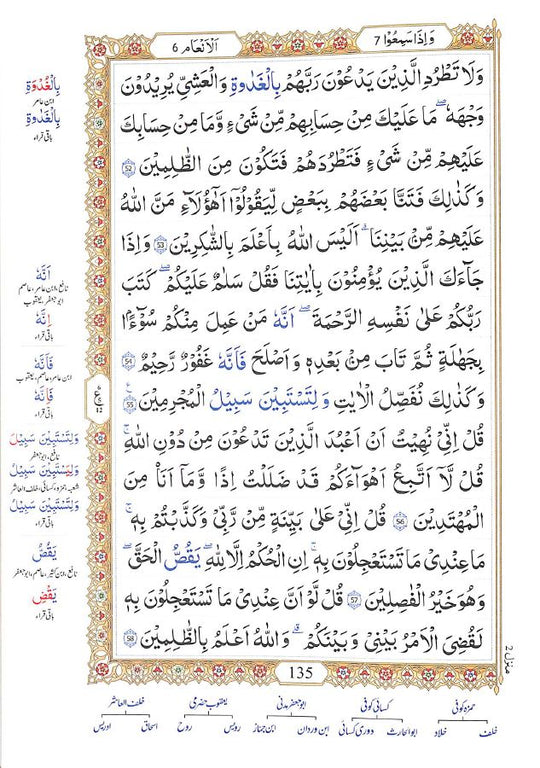 وَاِذَا سَمِعُوْا 7
اَلْاَنْعَام 6
وَلَا تَطْرُدِ الَّذِيْنَ يَدْعُوْنَ رَبَّهُمْ بِالْغَدٰوةِ وَالْعَشِيِّ يُرِيْدُوْنَ
وَجْهَهٗ ؕ مَا عَلَيْكَ مِنْ حِسَابِهِمْ مِّنْ شَيْءٍ وَّمَا مِنْ حِسَابِكَ
عَلَيْهِمْ مِّنْ شَيْءٍ فَتَطْرُدَهُمْ فَتَكُوْنَ مِنَ الظّٰلِمِيْنَ 52
وَكَذٰلِكَ فَتَنَّا بَعْضَهُمْ بِبَعْضٍ لِّيَقُوْلُوْٓا اَهٰٓؤُلَآءِ مَنَّ اللّٰهُ
عَلَيْهِمْ مِّنْۢ بَيْنِنَا ؕ اَلَيْسَ اللّٰهُ بِاَعْلَمَ بِالشّٰكِرِيْنَ 53 وَاِذَا
جَآءَكَ الَّذِيْنَ يُؤْمِنُوْنَ بِاٰيٰتِنَا فَقُلْ سَلٰمٌ عَلَيْكُمْ كَتَبَ
رَبُّكُمْ عَلٰى نَفْسِهِ الرَّحْمَةَ ۙ اَنَّهٗ مَنْ عَمِلَ مِنْكُمْ سُوْٓءًۢا
بِجَهَالَةٍ ثُمَّ تَابَ مِنْۢ بَعْدِهٖ وَاَصْلَحَ فَاَنَّهٗ غَفُوْرٌ رَّحِيْمٌ 54
وَكَذٰلِكَ نُفَصِّلُ الْاٰيٰتِ وَلِتَسْتَبِيْنَ سَبِيْلُ الْمُجْرِمِيْنَ 55
قُلْ اِنِّيْ نُهِيْتُ اَنْ اَعْبُدَ الَّذِيْنَ تَدْعُوْنَ مِنْ دُوْنِ اللّٰهِ ؕ
قُلْ لَّآ اَتَّبِعُ اَهْوَآءَكُمْ قَدْ ضَلَلْتُ اِذًا وَّمَآ اَنَا مِنَ
الْمُهْتَدِيْنَ 56 قُلْ اِنِّيْ عَلٰى بَيِّنَةٍ مِّنْ رَّبِّيْ وَكَذَّبْتُمْ بِهٖ ؕ
مَا عِنْدِيْ مَا تَسْتَعْجِلُوْنَ بِهٖ ؕ اِنِ الْحُكْمُ اِلَّا لِلّٰهِ ؕ يَقُصُّ الْحَقَّ
وَهُوَ خَيْرُ الْفٰصِلِيْنَ 57 قُلْ لَّوْ اَنَّ عِنْدِيْ مَا تَسْتَعْجِلُوْنَ بِهٖ
لَقُضِيَ الْاَمْرُ بَيْنِيْ وَبَيْنَكُمْ ؕ وَاللّٰهُ اَعْلَمُ بِالظّٰلِمِيْنَ 58
بِالْغُدْوَةِ
ابن عامر
بِالْغَدٰوةِ
باقی قراء
اَنَّهٗ
نافع، ابن عامر، عاصم
ابو جعفر، یعقوب
اِنَّهٗ
باقی قراء
فَاَنَّهٗ
ابن عامر، عاصم، یعقوب
فَاِنَّهٗ
باقی قراء
ع
12
وَلِتَسْتَبِيْنَ سَبِيْلَ
نافع، ابو جعفر
وَلِيَسْتَبِيْنَ سَبِيْلُ
شعبہ، حمزہ، کسائی، خلف العاشر
وَلِتَسْتَبِيْنَ سَبِيْلُ
باقی قراء
يَقُصُّ
نافع، ابن کثیر، عاصم، ابو جعفر
يَقْضِ
باقی قراء
منزل 2
135
حمزہ کوفی
کسائی کوفی
ابو جعفر مدنی
یعقوب حضرمی
خلف العاشر
خلف
خلاد
ابو الحارث
دوری کسائی
ابن وردان
ابن جماز
رویس
روح
اسحاق
ادریس